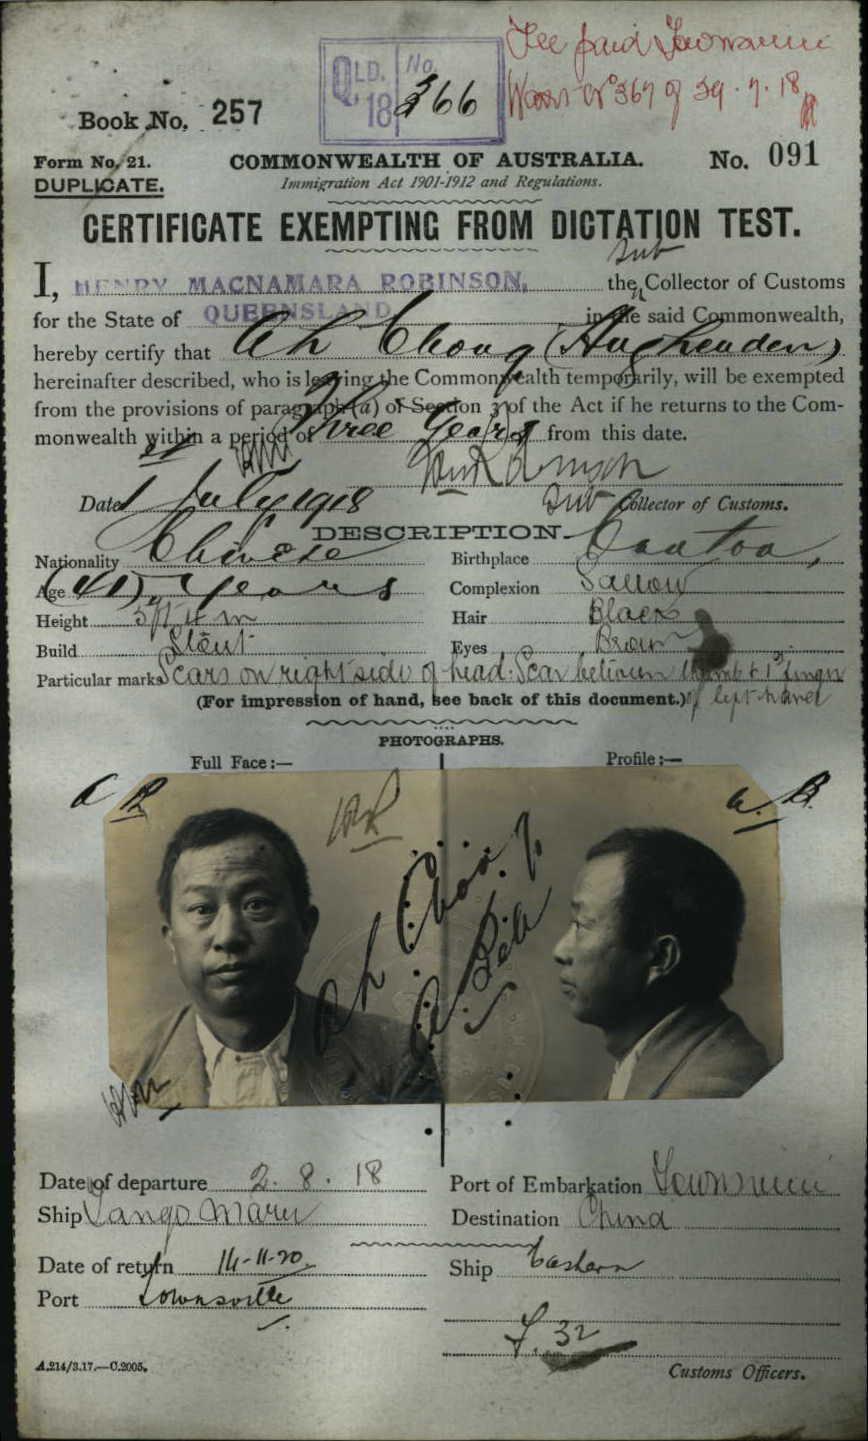 Fee paid Townsville
QLD. No.
'18 366
No. 367 of 29.7.18
Book No. 257
Form No. 21. COMMONWEALTH OF AUSTRALIA. No. 091
DUPLICATE. Immigration Act 1901-1912 and Regulations.
CERTIFICATE EXEMPTING FROM DICTATION TEST.
Sub
I, HENRY MACNAMARA ROBINSON, the Collector of Customs
for the State of QUEENSLAND in the said Commonwealth,
hereby certify that Ah Chong (Hughenden)
hereinafter described, who is leaving the Commonwealth temporarily, will be exempted
from the provisions of paragraph (a) of Section 3 of the Act if he returns to the Com-
monwealth within a period of Three Years from this date.
Date 1st July 1918 Sub Collector of Customs.
DESCRIPTION.
Nationality Chinese Birthplace Canton,
Age (41) years Complexion Sallow
Height 5ft 4 in Hair Black
Build Stout Eyes Brown
Particular marks Scars on right side of head. Scar between thumb & 1st finger
of left hand
(For impression of hand, see back of this document.)
PHOTOGRAPHS.
Full Face :— Profile :—
Ah Chong
Date of departure 2.8.18 Port of Embarkation Townsville
Ship Tango Maru Destination China
Date of return 14-11-20 Ship Eastern
Port Townsville
F. 32
A.214/3.17.—C.2005. Customs Officers.